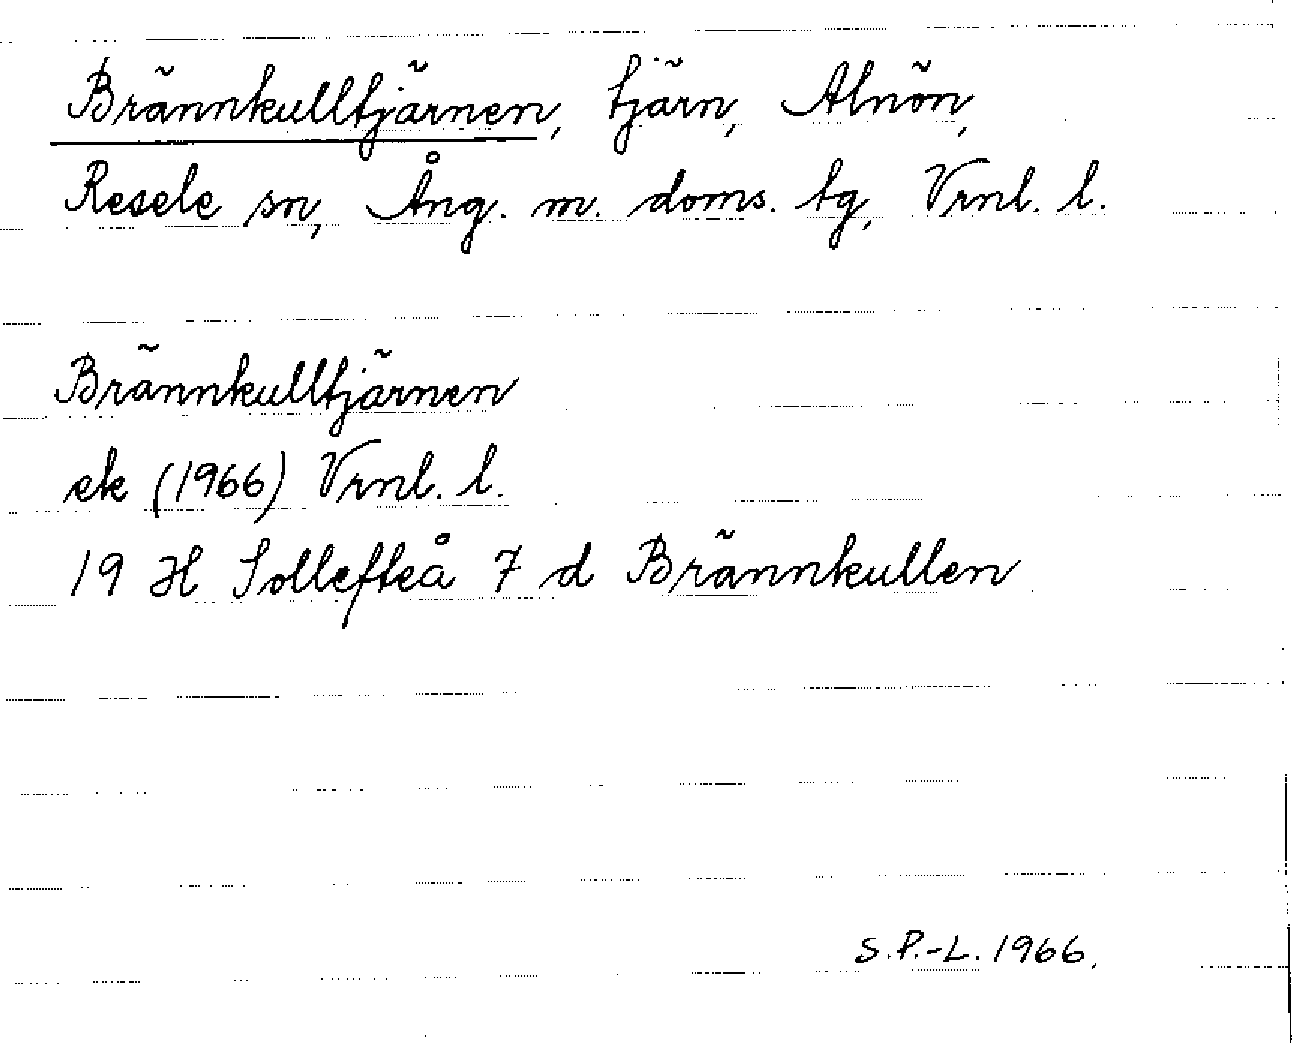 Brännkulltjärnen, tjärn, Alnön,
Resele sn, Ång. m. doms. tg, Vrnl. l.
Brännkulltjärnen
ek (1966) Vrnl. l.
19 H Sollefteå 7 d Brännkullen
S.P.-L. 1966.